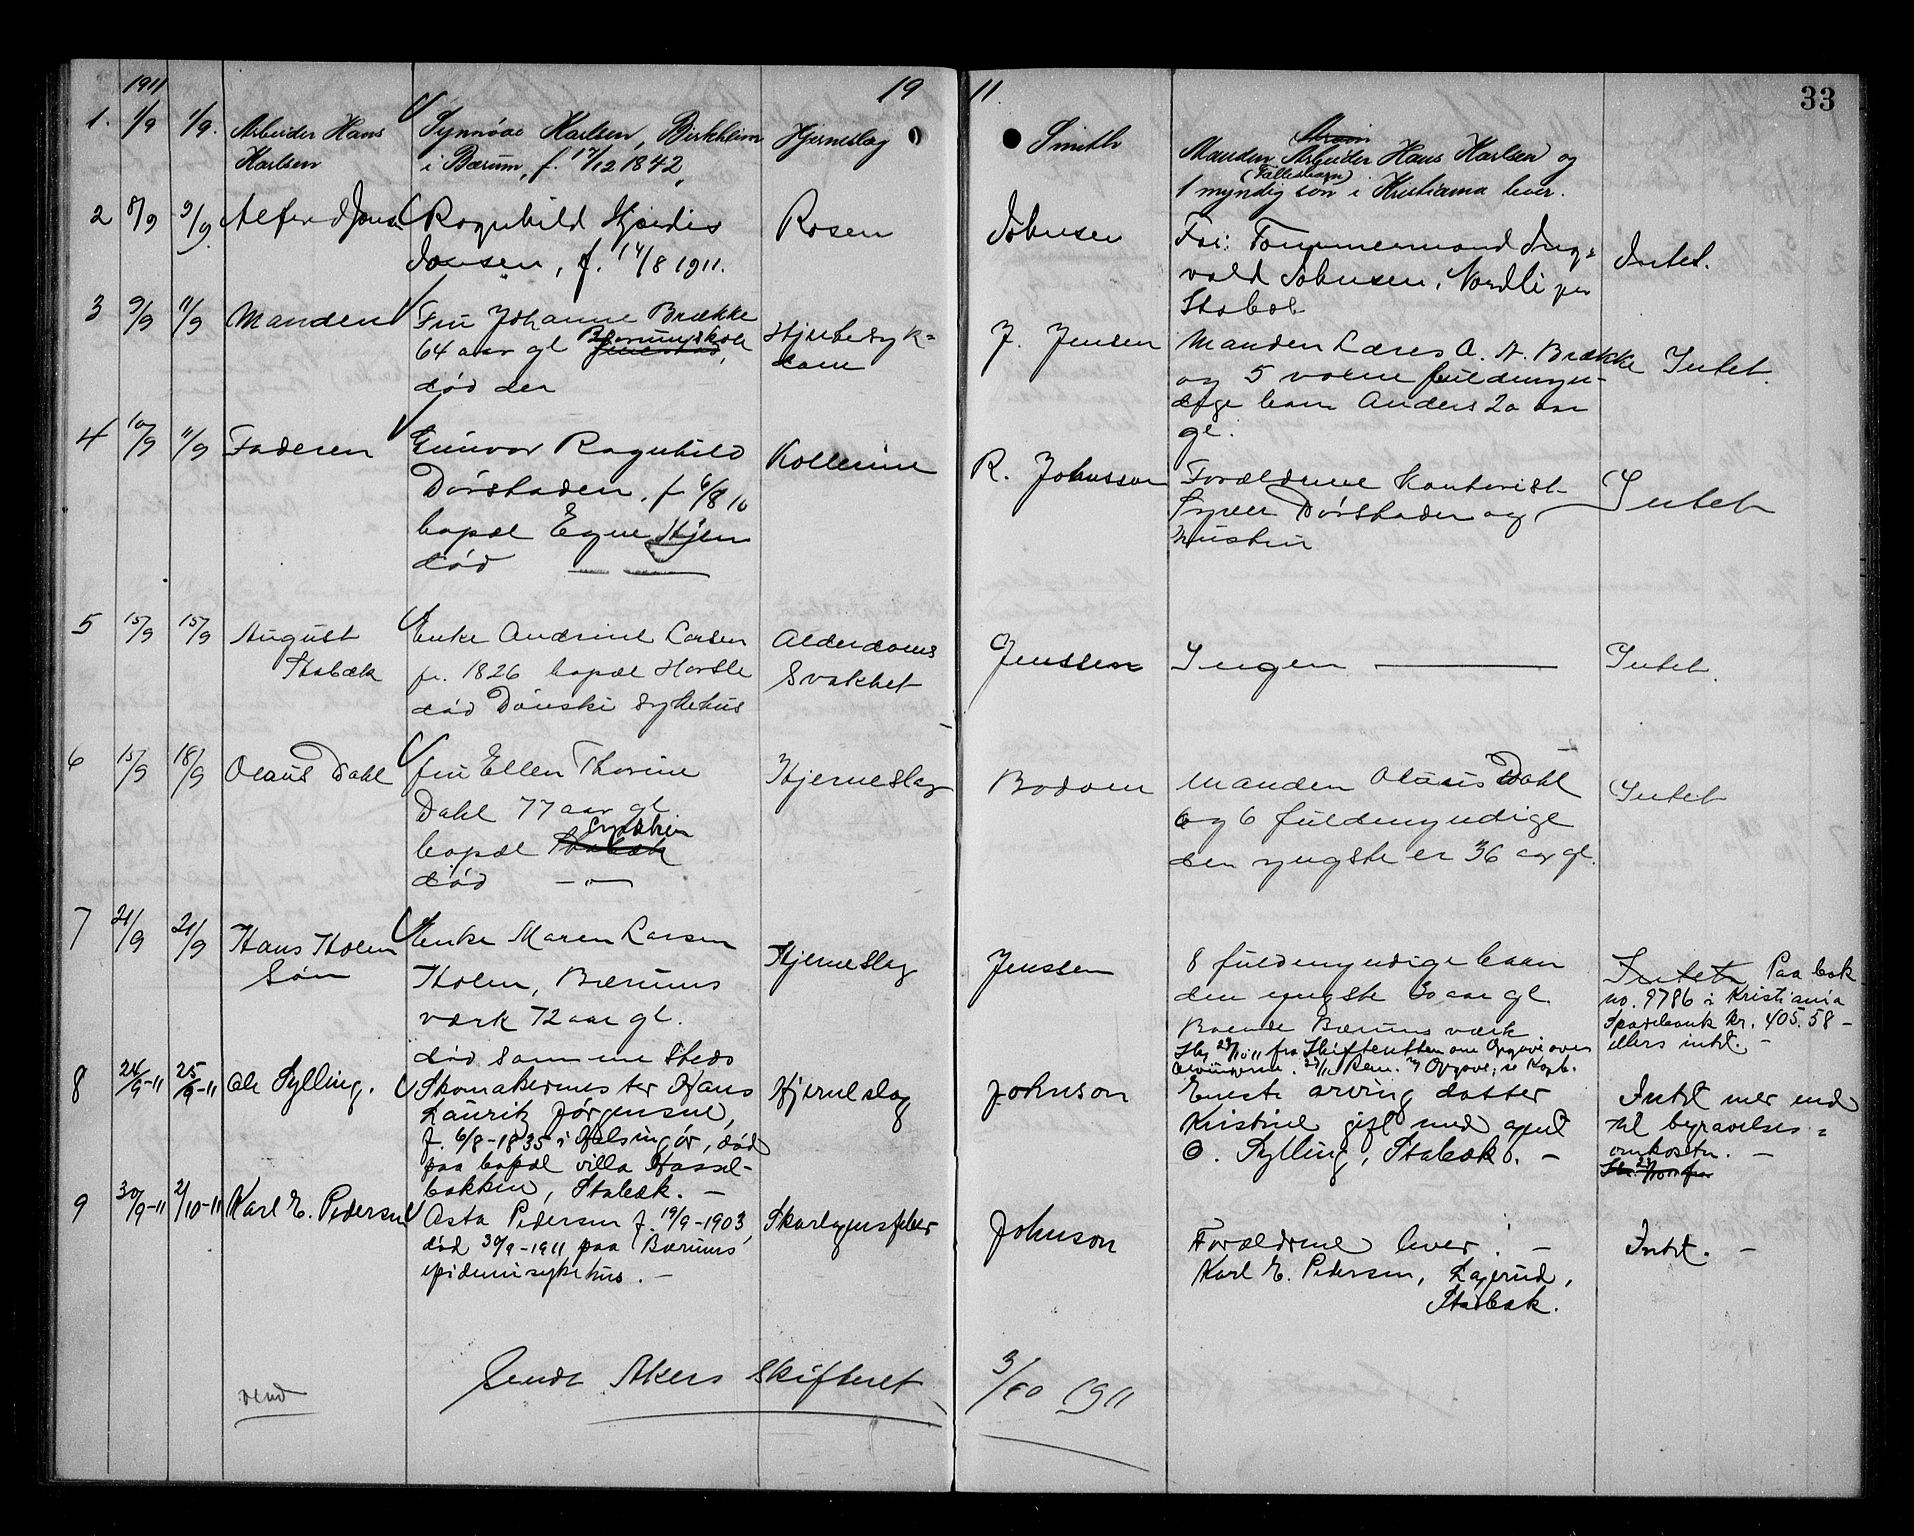 1911 19 11 33
1. 1/9 1/9. Arbeider Hans
Karlsen
Synnöve Karlsen, Birkheim
i Bærum, f. 17/12 1842,
Hjerneslag
Smith
Manden Arbeider Hans Karlsen og
(Fællesbarn)
1 myndig sön i Kristiania lever.
2 8/9 9/9. Alfred Jons
Ragnhild Hjördis
Jonsen, f. 14/8 1911.
Rosen
Johnsen
Far: Tömmermand Ing-
vald Johnsen, Nordli per
Stabek
Intet.
3 9/9 11/9 Manden
Fru Johanne Brække
64 aar gl Bærumskole
död der
Hjertesyk=
dom
J. Jensen
Manden Lærer A. A. Brække
og 5 voxne fuldmyn-
dige barn Anders 20 aar
gl.
Intet.
4 10/9 11/9 Faderen
Gunvor Ragnhild
Dörstaden, f. 6/8 10
bopæl Egne Hjem
död — " —
Kollerine
R. Johnsson
Forældrene Kontorist
Dörstaden og
Hustru
Intet
5 15/9 15/9 August
Stabæk
Enke Andrine Larsen
f. 1826 bopæl Horsle
död Dönski Sykehus
Alderdoms
Svakhet
Jenssen
Ingen —
Intet.
6 15/9 18/9 Olaus Dahl
fru Ellen Thorine
Dahl 77 aar gl
bopæl Stabæk
död — " —
Hjerneslag
Bodom
Manden Olaus Dahl
og 6 fuldmyndige
den yngste er 36 aar gl.
Intet
7 21/9 21/9 Hans Holm
Sön
Enke Maren Larsen
Holm, Bærums
værk 72 aar gl.
död samme Steds
Hjerneslag
Jenssen
8 fuldmyndige barn
den yngste 30 aar gl.
Boende Bærums værk
Skr 27/10 11 fra Skifteretten om Opgave over
Arvingerne.
Intet Paa bok
no. 9786 i Kristiania
Sparebank kr. 405.58 -
ellers intet. -
8 24/9-11 25/9-11 Ole Sylling.
Skomakermester Hans
Lauritz Jörgensen,
f. 6/8-1835 i Helsingör, död
paa bopæl villa Hassel-
bakken, Stabæk. -
Hjerneslag
Johnson
Eneste arving datter
Kristine gift med agent
O. Sylling, Stabæk. -
Intet mer end
til begravelses-
omkostn. -
9 30/9-11 2/10-11 Karl E. Pedersen
Asta Pedersen f. 19/9-1903,
död 30/9-1911 paa Bærums
epidemisykehus. -
Skarlagensfeber
Johnson
Forældrene lever. -
Karl E. Pedersen, Lagerud,
Stabæk.
Intet. -
Sendt Akers Skifteret 3/10 1911